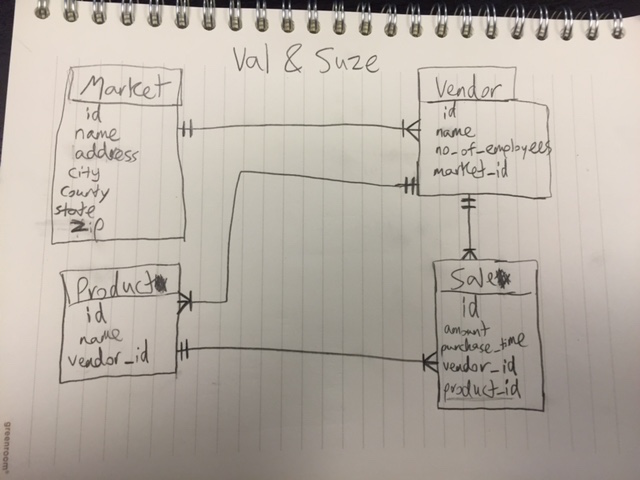 Val & Suze
Market
id
name
address
city
county
state
zip
Vendor
id
name
no_of_employees
market_id
Product
id
name
vendor_id
Sale
id
amount
purchase_time
vendor_id
product_id
greenroom